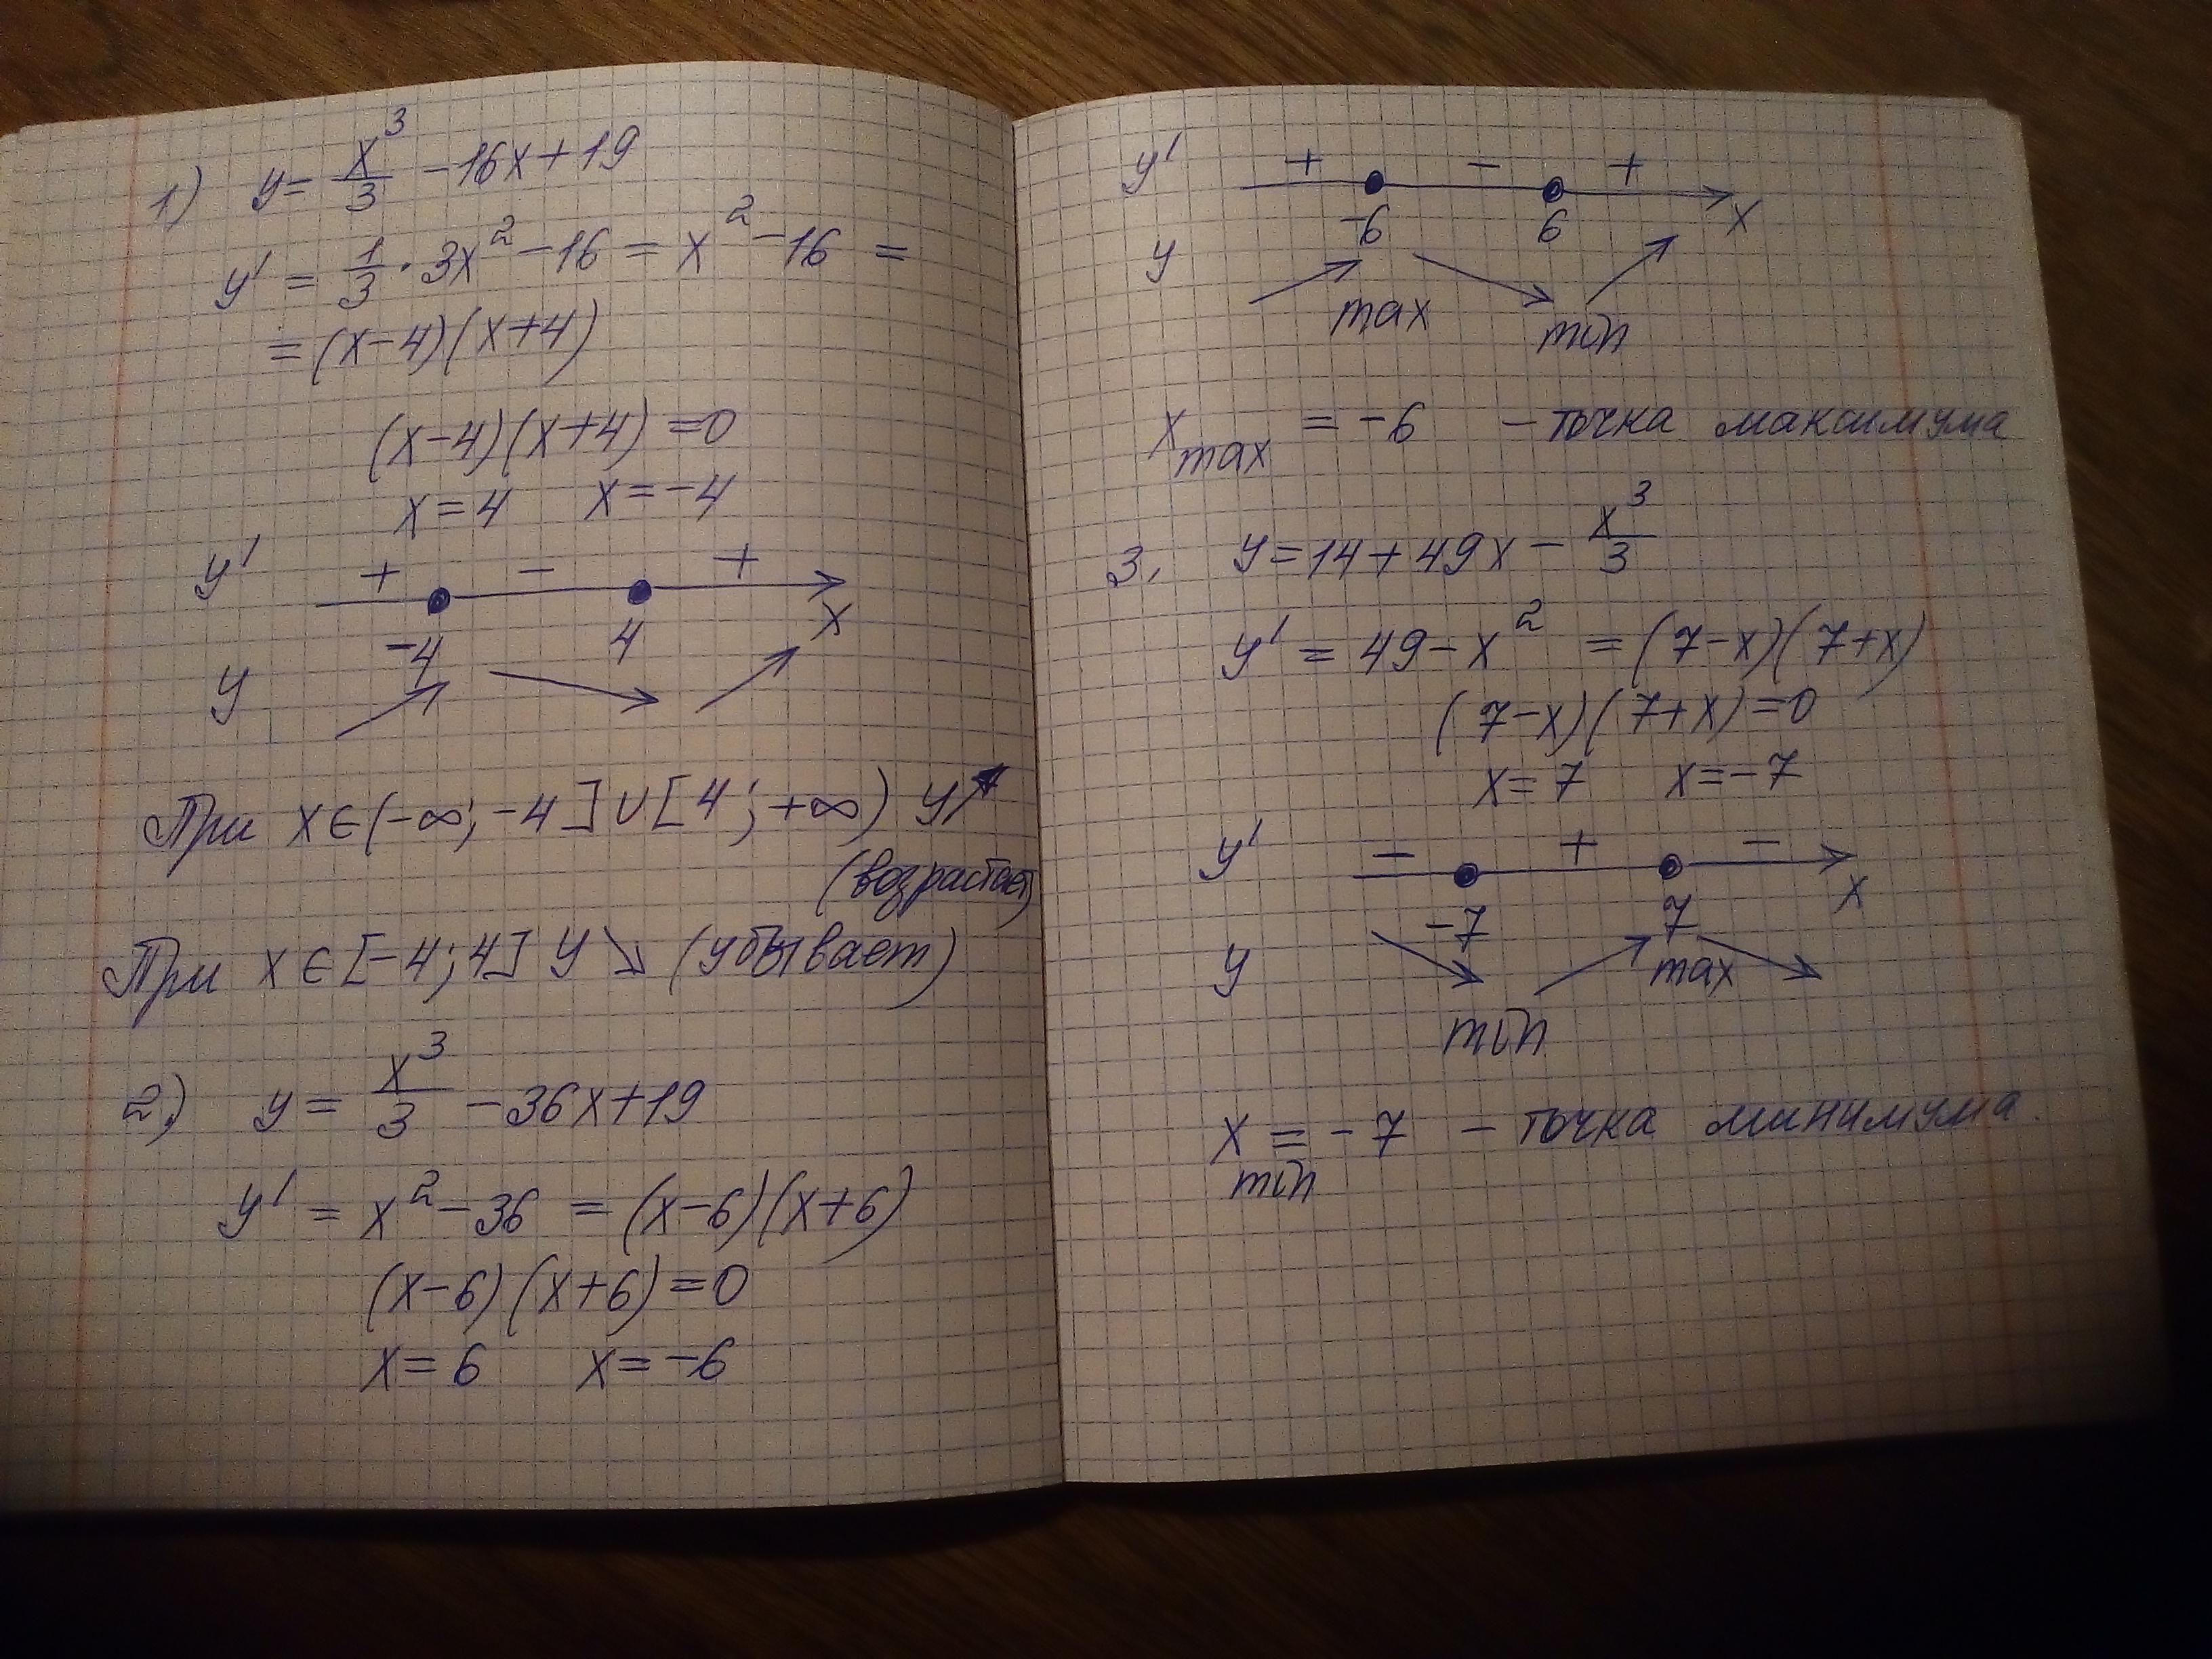 1) y = x³/3 - 16x + 19
y' = 1/3 · 3x² - 16 = x² - 16 =
= (x-4)(x+4)
(x-4)(x+4) = 0
x = 4 x = -4
y' + - +
-4 4 x
y
При x ∈ (-∞; -4] ∪ [4; +∞) y↗
(возрастает)
При x ∈ [-4; 4] y ↘ (убывает)
2) y = x³/3 - 36x + 19
y' = x² - 36 = (x-6)(x+6)
(x-6)(x+6) = 0
x = 6 x = -6
y' + - +
-6 6 x
y
max min
x max = -6 - точка максимума
3. y = 14 + 49x - x³/3
y' = 49 - x² = (7-x)(7+x)
(7-x)(7+x) = 0
x = 7 x = -7
y' - + -
-7 7 x
y max
min
x min = -7 - точка минимума.